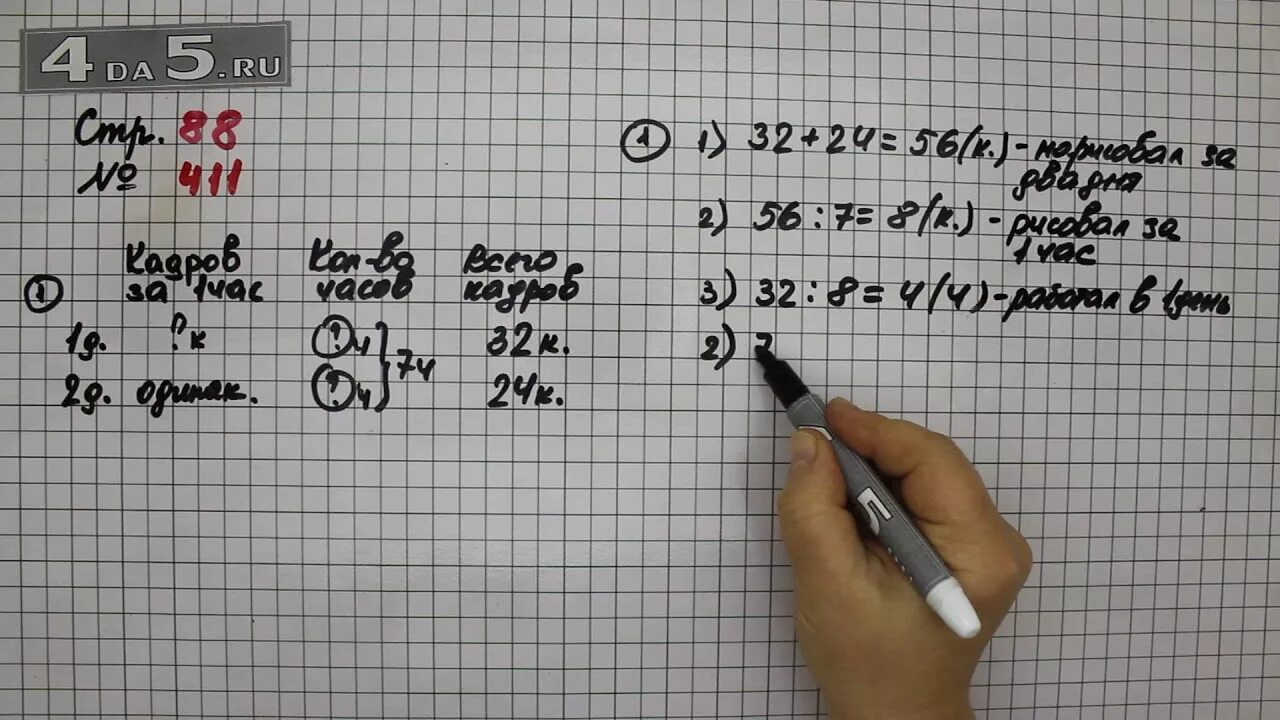 4 DA 5.RU
Стр. 88
№ 411
1
Кадров Кол-во Всего
за 1час часов кадров
1д. ?к ?ч 32к.
7ч
2д. одинак. ?ч 24к.
1 1) 32+24=56(к.)-нарисовал за
два дня
2) 56:7=8(к.)-рисовал за
1 час
3) 32:8=4(ч)-работал в 1день
2) 7
5